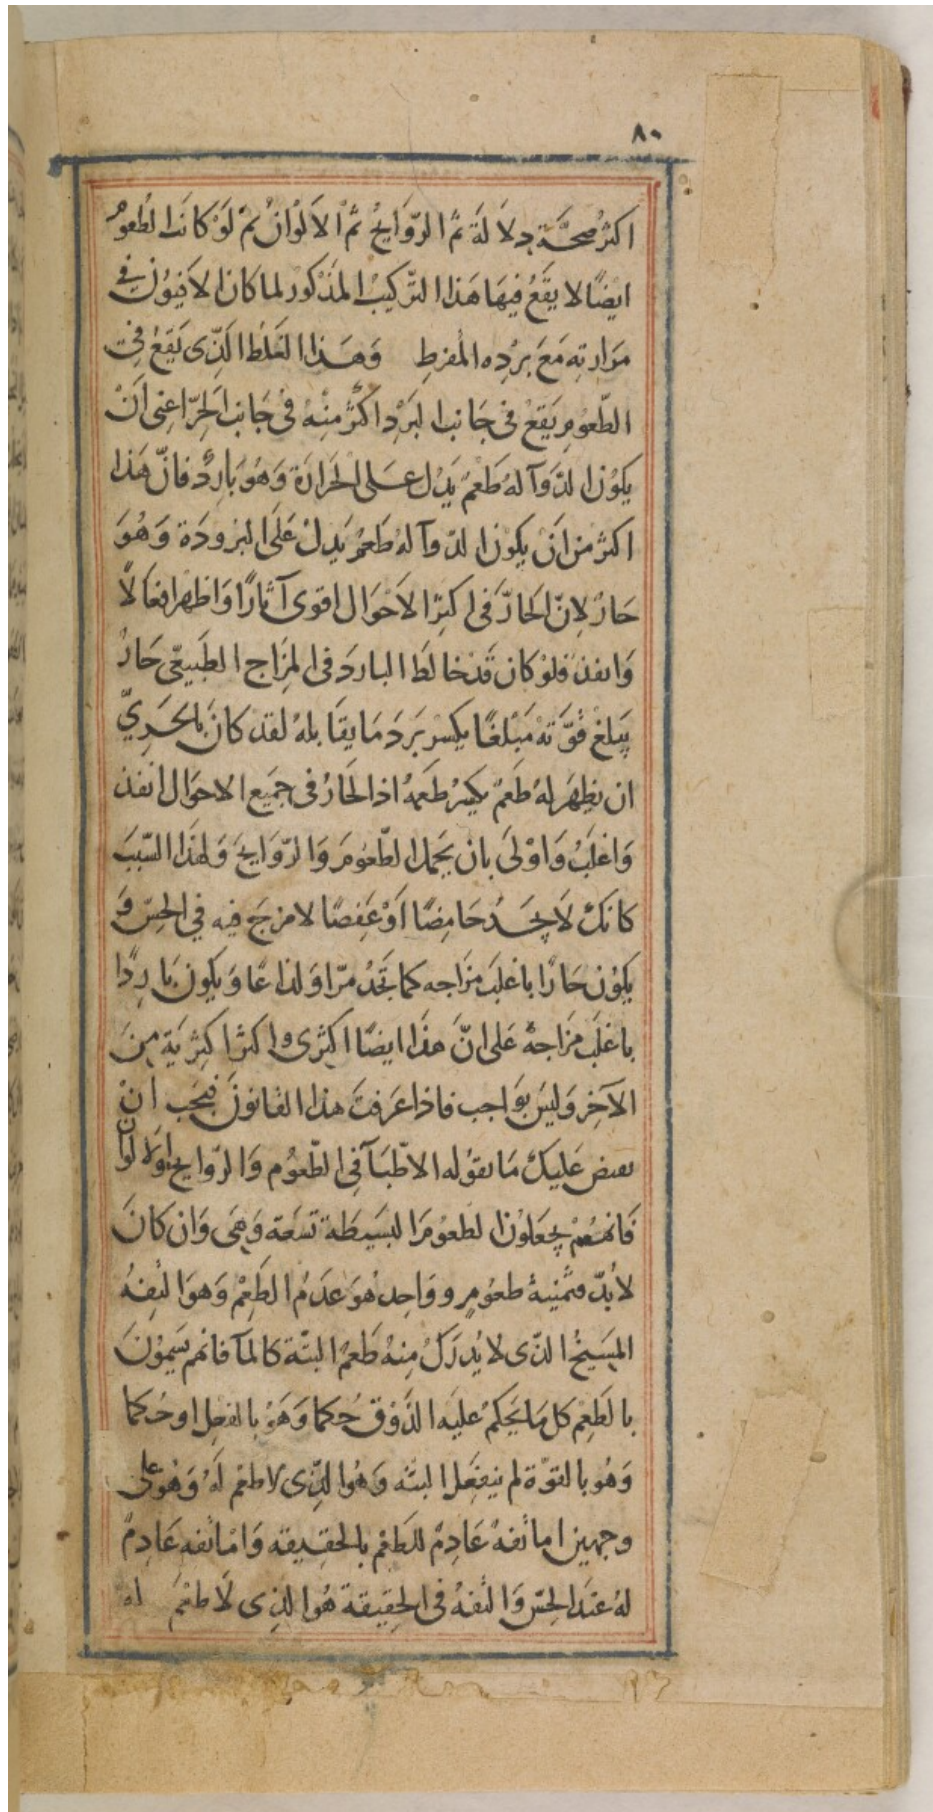 ٨٠
اكثر صحَّة دِلاَلَة ثمَّ الرّوَايحُ ثمَّ الاَلْوَانُ ثمّ لَوْ كانَت الطُعُومُ
ايضًا لا يَقَعُ فيهَا هَذا التّركيبُ المَذْكور لما كان الاَفيُونُ في
مَرارتِه مَعَ بَرْدِه المُفرطِ وَهَذا الغَلَطُ الَّذِى يَقَعُ في
الطّعُومِ يَقَعُ فى جَانب البَرْدِ اكثرُ مِنْهُ فى جَانب الحَرّ اعنى اَنْ
يكُوُن الدّوَآ لهُ طَعْمٌ يَدُل عَلى الحَرارَة وَهُوَ بَارِدٌ فانّ هَذا
اكثرُ من اَنْ يكون الدّوآ لهُ طعمٌ يَدِلُ عَلَى البُرودَة وَهُوَ
حَارٌ لِانّ الحَارّ فى اكثرِ الاَحْوَال اقوى آثارًا وَاظهرُ افعَالاً
وَانفذُ فلوْ كان قَدْ خالطَ البارِدَ فى المِزَاج الطَبيعىّ حَارٌ
يَبلغ قُوَّتهُ مَبْلَغًا يكسر بَرَدَ مَا يقَابلهُ لقد كانَ بالحَرِيّ
ان يظهَرَ لهُ طَعمٌ يكسِرُ طَعمهُ اذ الحَارُ فى جميَع الاحوَال انفذ
وَاغلَبُ وَاوْلَى بان يحمل الطّعومَ وَالرّوَايحَ وَلهَذا السّبَبَ
كانكَ لَا تجَدُ حَامضًا اَوْ عَفِصًا لا مزجَ فيه في الحِسّ وَ
يكوُن حَارًا باغلبَ مزَاجه كما تَجَدُ مرّا وَلذاعًا وَيكون بَارِدًا
باغلَب مَزاجهُ عَلى انّ هَذا ايضًا اكثرى واكثر اكثريَة مِنَ
الآخِرِ وَليسَ بوَاجب فاذا عَرفتَ هذا القانونَ فيَجب انْ
نعيض عَليكَ مَا يقوُله الاطّبَآ فى الطّعُوم وَالرّوايح وَالالوان
فَانهُمْ يجعَلوُن الطعوُمَ البَسيَطة تسعَة وَهى وَان كانَ
لابُدّ فثمنيةُ طعُومٍ وواحِد هُوَ عَدَمُ الطَعْمِ وَهوَ التفِهُ
المَسِيخُ الذّى لا يُدرَكُ مِنهُ طَعمٌ البتّة كالمَآ فانهم يَسَموُنَ
بالطَعِم كل مَا يَحكم عَليَه الذّوق حُكما وَهوَ بالفعِل او حُكما
وَهُو بالقوّة لم ينفعِل البتّه وَهُوَ الذِّى لا طعْم لَهُ وَهُوَ على
وجهين اما تفهٌ عَادِمٌ للطَعْمِ بالحقِيقه وَامّا تفِه عَادِمٌ
لهُ عنَد الحِسّ وَالتفهُ فى الحِقيقة هُوا لذِى لَا طَعْم له